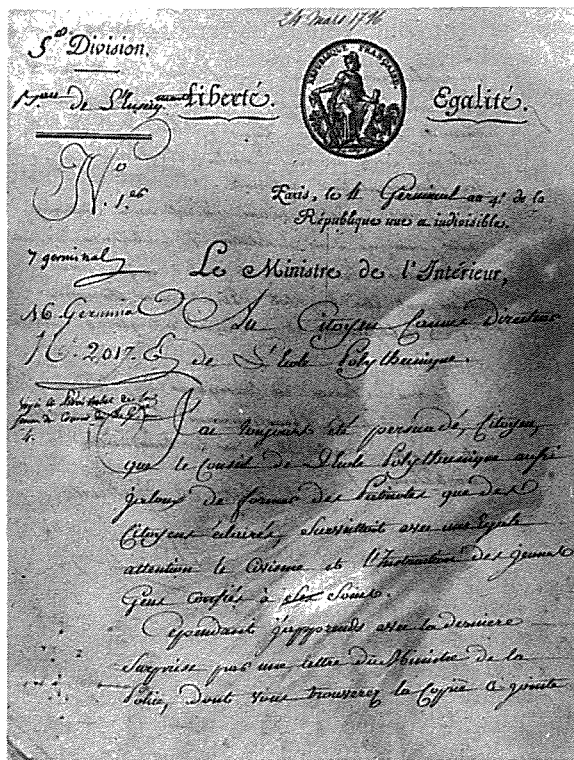 24 mars 1796
5e Division.
Bau de l'Instr
Liberté.
RÉPUBLIQUE FRANÇAISE
Egalité.
No
Paris, le 4 Germinal an 4e. de la
République une et indivisible.
7 germinal
Le Ministre de l'Intérieur,
16. Germinal
Au Citoyen Directeur
N. 2017.
de L'Ecole Polythecnique.
J'ai toujours été persuadé, Citoyen,
que le Conseil de L'Ecole Polythecnique aussi
jaloux de former des Patriotes que des
Citoyens éclairés, surveilloit avec une égale
attention le Civisme et l'Instruction des jeunes
Gens confiés à ses Soins.
Cependant j'apprends avec la derniere
Surprise par une lettre du Ministre de la
Police, dont vous trouverez la Copie cy jointe